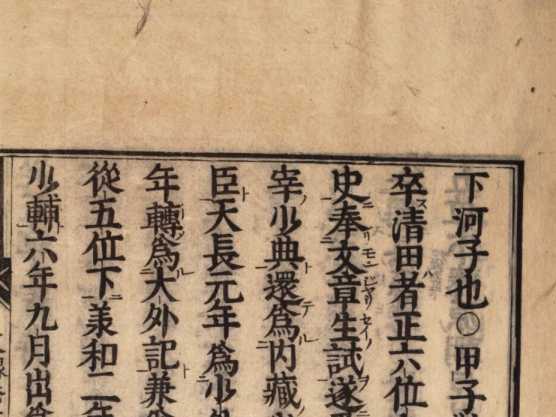 下河子也○甲子
卒清田者正六位
史奉文章生試遂
宰少典還為内藏
臣天長元年為少
年轉為大外記兼
從五位下羨和二年
少輔六年九月出為